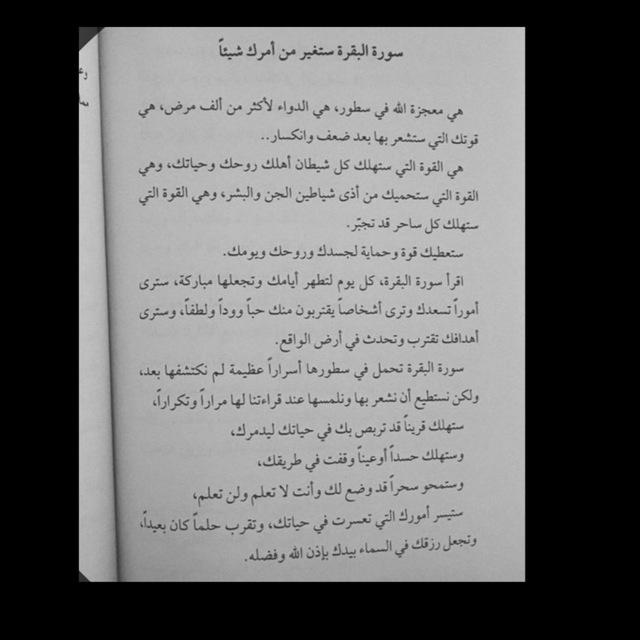 سورة البقرة ستغير من أمرك شيئاً
هي معجزة الله في سطور، هي الدواء لأكثر من ألف مرض، هي
قوتك التي ستشعر بها بعد ضعف وانكسار..
هي القوة التي ستهلك كل شيطان أهلك روحك وحياتك، وهي
القوة التي ستحميك من أذى شياطين الجن والبشر، وهي القوة التي
ستهلك كل ساحر قد تجبّر.
ستعطيك قوة وحماية لجسدك وروحك ويومك.
اقرأ سورة البقرة، كل يوم لتطهر أيامك وتجعلها مباركة، سترى
أموراً تسعدك وترى أشخاصاً يقتربون منك حباً ووداً ولطفاً، وسترى
أهدافك تقترب وتحدث في أرض الواقع.
سورة البقرة تحمل في سطورها أسراراً عظيمة لم نكتشفها بعد،
ولكن نستطيع أن نشعر بها ونلمسها عند قراءتنا لها مراراً وتكراراً،
ستهلك قريناً قد تربص بك في حياتك ليدمرك،
وستهلك حسداً أوعيناً وقفت في طريقك،
وستمحو سحراً قد وضع لك وأنت لا تعلم ولن تعلم،
ستيسر أمورك التي تعسرت في حياتك، وتقرب حلماً كان بعيداً،
وتجعل رزقك في السماء بيدك بإذن الله وفضله.